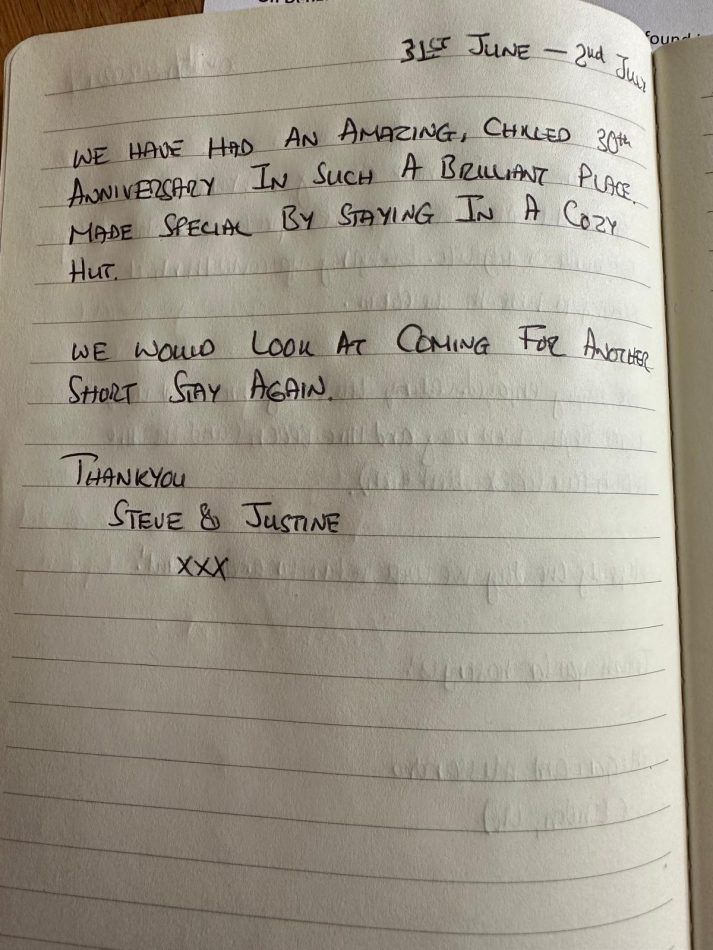 found i
31ST JUNE – 2nd JULY
WE HAVE HAD AN AMAZING, CHILLED 30th
ANNIVERSARY IN SUCH A BRILLIANT PLACE.
MADE SPECIAL BY STAYING IN A COZY
HUT.
WE WOULD LOOK AT COMING FOR ANOTHER
SHORT STAY AGAIN.
THANKYOU
STEVE & JUSTINE
XXX